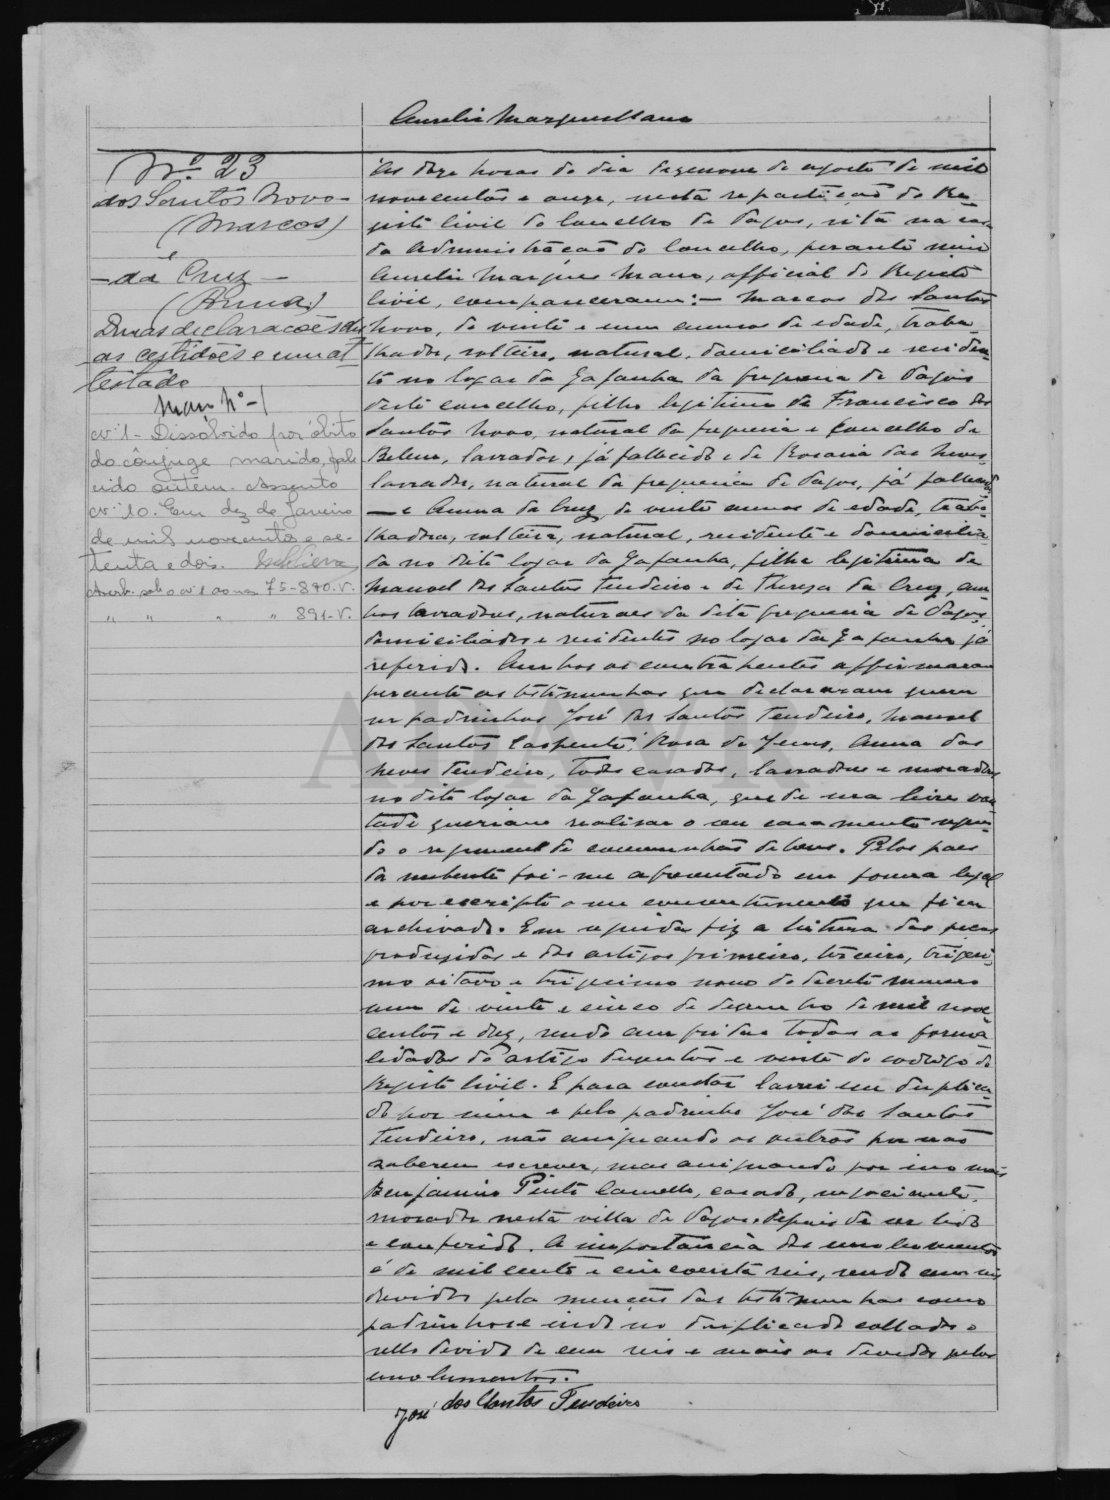 Aurelio Marques Mano
Nº 23
dos Santos Novo -
(Marcos)
- da Cruz -
(Anna)
Duas declarações, du
as certidões e um at
testado
Maço nº 1
Av. 1 - Dissolvido por óbito
do cônjuge marido, fale
cido ontem. Assento
nº 10. Em dez de Janeiro
de mil novecentos e se-
tenta e dois.
Averb. sob o nº 1 ao nos 75-890.V.
" " " " 891-V.
Ás doze horas do dia dezenove de agosto de mil
novecentos e onze, nesta repartição do Re-
gisto Civil do Concelho de Vagos, sita na casa
da Administração do Concelho, perante mim
Aurelio Marques Mano, official do Registo
Civil, compareceram: - Marcos dos Santos
Novo, de vinte e um annos de edade, traba-
lhador, solteiro, natural, domiciliado e residen-
te no logar da Gafanha da freguesia de Vagos
deste concelho, filho legitimo de Francisco dos
Santos Novo, natural da freguesia e concelho de
Belem, lavrador, já fallecido e de Rosaria das Neves,
lavradora, natural da freguesia de Vagos, já fallecida
- e Anna da Cruz, de vinte annos de edade, traba-
lhadora, solteira, natural, residente e domicilia-
da no dito logar da Gafanha, filha legitima de
Manoel dos Santos Tendeiro e de Thereza da Cruz, am-
bos lavradores, naturaes da dita freguesia de Vagos,
domiciliados e residentes no logar da Gafanha já
referido. Ambos os contrahentes affirmaram
perante as testemunhas que declararam querer
ser padrinhos José dos Santos Tendeiro, Manoel
dos Santos Carpente, Rosa de Jesus, Anna das
Neves Tendeiro, todos casados, lavradores e moradores
no dito logar da Gafanha, que de sua livre von-
tade queriam realisar o seu casamento segun-
do o regimen de communhão de bens. Pelos paes
da nubente foi-me apresentado em forma legal
e por escripto o seu consentimento que fica
archivado. Em seguida fiz a leitura das peças
produzidas e dos artigos primeiro, terceiro, trigesi-
mo oitavo e trigesimo nono do decreto numero
um de vinte e cinco de dezembro de mil nove-
centos e dez, sendo cumpridas todas as forma-
lidades do artigo duzentos e vinte do codigo do
Registo Civil. E para constar lavrei em duplica-
do por mim e pelo padrinho José dos Santos
Tendeiro, não assignando os outros por não
saberem escrever, mas assignando por isso mais
Benjamin Pinto Camello, casado, negociante,
morador nesta villa de Vagos, depois de ser lido
e conferido. A importancia dos emolumentos
é de mil cento e cincoenta reis, sendo cem reis
devidos pela menção das testemunhas como
padrinhos e indo no duplicado collado o
sello devido de cem reis e mais os devidos pelos
emolumentos.
José dos Santos Tendeiro